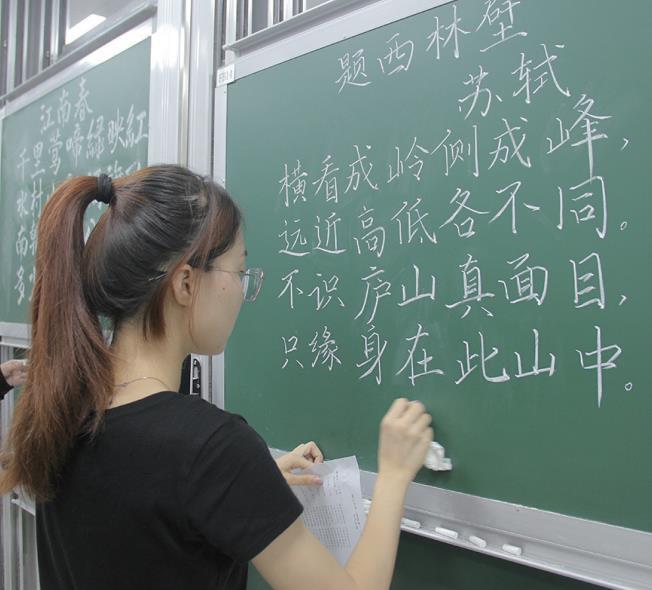 题西林壁
苏轼
横看成岭侧成峰，
远近高低各不同。
不识庐山真面目，
只缘身在此山中。
江南春
千里莺啼绿映红
水村
南
多